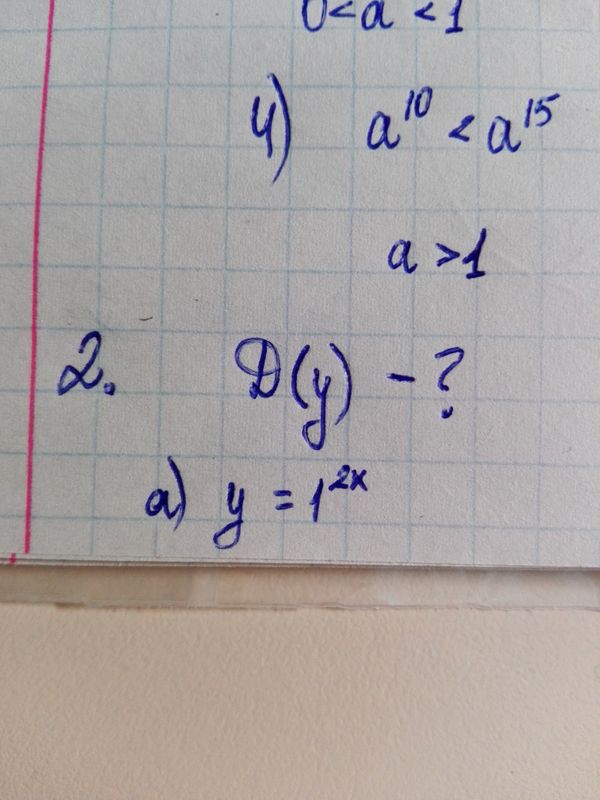 0<a<1
4) a¹⁰ < a¹⁵
a >1
2. D(y) - ?
a) y = 1²ˣ